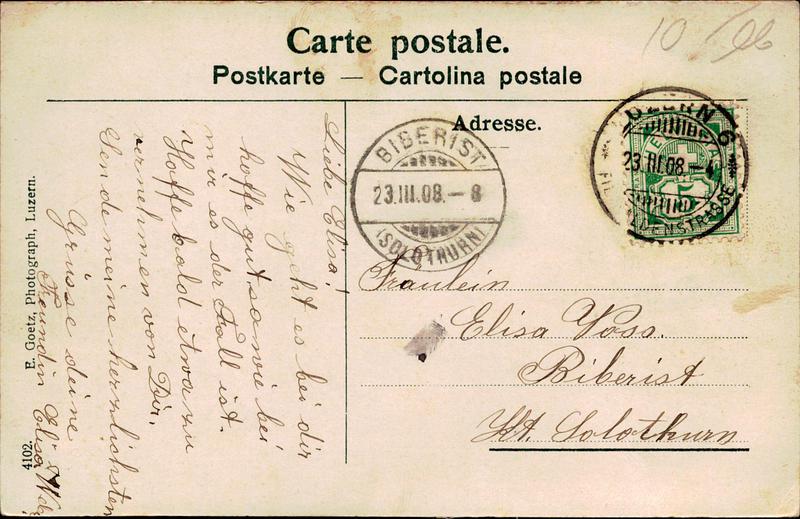 Carte postale.
Postkarte — Cartolina postale
10/06
Adresse.
LUZERN 6
23.III.08.
BIBERIST
23.III.08.-8
(SOLOTHURN)
Fräulein
Elisa Voss.
Biberist
Kt. Solothurn
Liebe Elisa!
Wie geht es bei dir
hoffe gut sowie bei
mir es der Fall ist.
Hoffe bald etwas zu
vernehmen von Dir.
Sende meine herzlichsten
Grüsse deine
Freundin Elsa
E. Goetz, Photograph, Luzern.
4102.